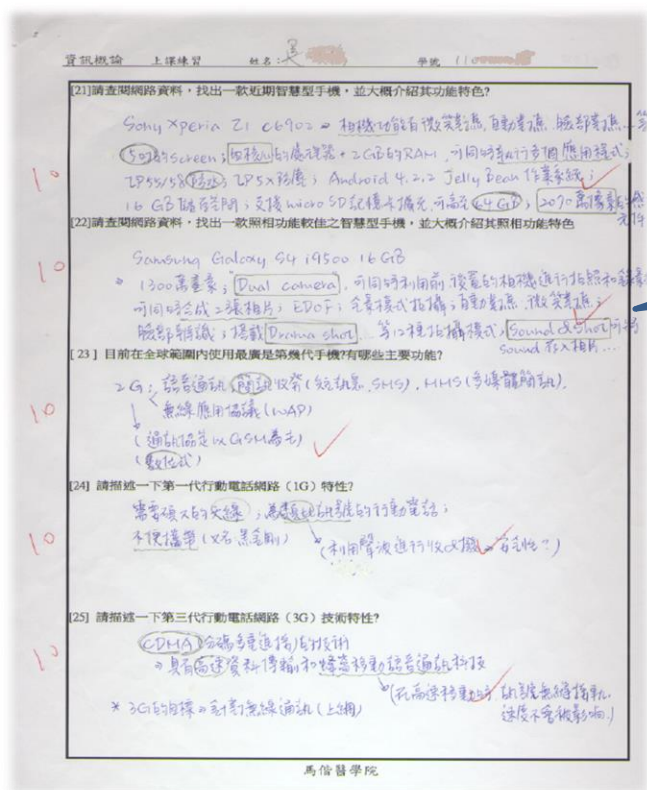 資訊概論 上課練習 姓名: 學號 11
[21]請查閱網路資料,找出一款近期智慧型手機,並大概介紹其功能特色?
Sony Xperia Z1 C6902 → 相機功能有微笑快門,自動對焦,臉部對焦...等
5吋的screen; 四核心的處理器+2GB的RAM,可同時執行多個應用程式;
IP55/58防水; IP5X防塵; Android 4.2.2 Jelly Bean 作業系統;
10
16 GB 儲存空間; 支援micro SD記憶卡擴充,可高至64GB; 2070萬像素感光元件
[22]請查閱網路資料,找出一款照相功能較佳之智慧型手機,並大概介紹其照相功能特色
Samsung Galaxy S4 i9500 16 GB
10
* 1300萬畫素; "Dual camera",可同時利用前後置的相機進行拍照和錄影
可同時合成2張相片; EDOF; 全景模式拍攝; 自動對焦,微笑快門;
臉部辨識; 搭載Drama shot...等12種拍攝模式; Sound & Shot可將
sound 存入相片...
[23]目前在全球範圍內使用最廣是第幾代手機?有哪些主要功能?
2G: 語音通訊,簡訊收發(短訊息,SMS),MMS(多媒體簡訊),
無線應用協議(WAP)
10
(通訊協定以GSM為主)
(數位式)
[24] 請描述一下第一代行動電話網路(1G)特性?
需要碩大的天線; 為類比訊號的行動電話;
不便攜帶(又名:黑金剛)
10
(利用聲波進行收發
[25] 請描述一下第三代行動電話網路(3G)技術特性?
CDMA(分碼多重進接)的技術
10
→具有高速資料傳輸和蜂窩移動語音通訊科技
(在高速移動時 訊號無縫接軌,
速度不會被影響.)
* 3G的目標→針對無線通訊(上網)
馬偕醫學院